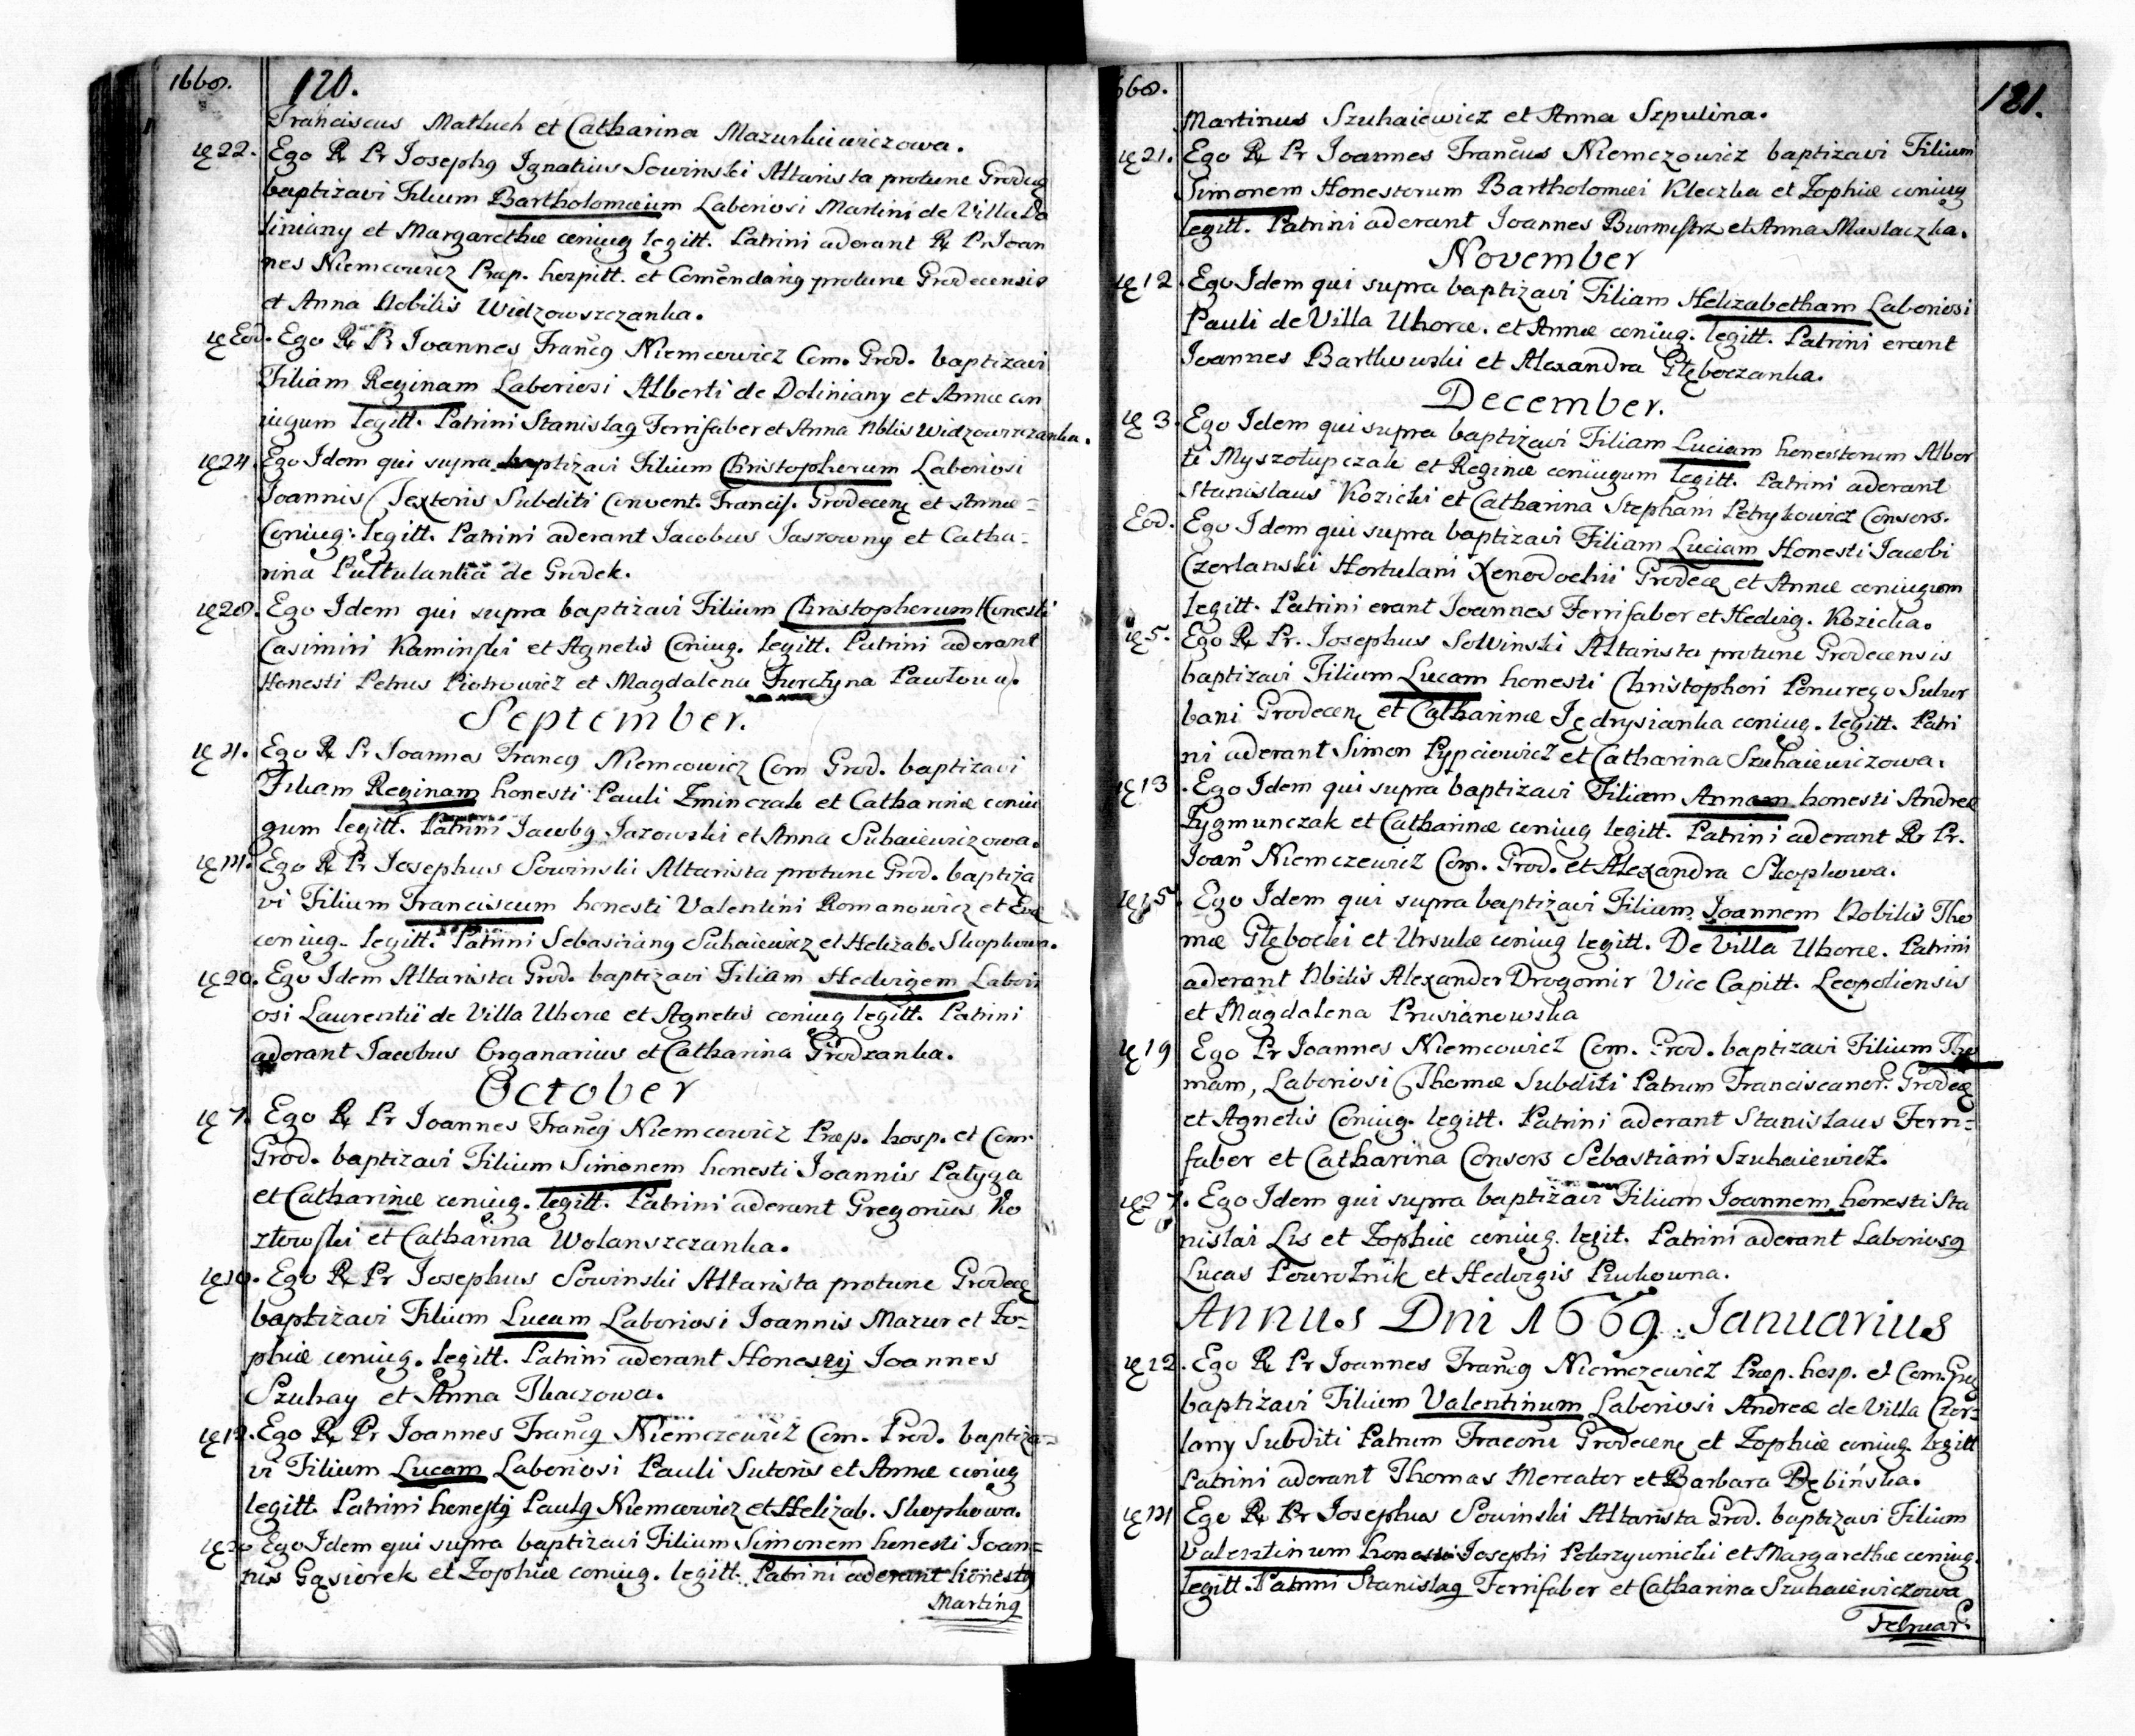 1668.
120.
Franciscus Matluch et Catharina Mazurkiewiczowa.
22. Ego R Pr Joseph9 Ignatius Sowinski Altarista protunc Grodeg
baptizavi Filium Bartholomæum Laboriosi Martini de Villa Do
liniany et Margarethæ coniug legitt. Patrini aderant R Pr Joan
nes Niemcowicz Præp. hospitt. et Comendarig protunc Grodecensis
et Anna Nobilis Widzowszczanka.
Eod. Ego R Pr Joannes Francg Niemcowicz Com. Grod. baptizavi
Filiam Reginam Laboriosi Alberti de Doliniany et Annæ con
iugum legitt. Patrini Stanislag Ferrifaber et Anna Nblis Widzowszczanka.
24. Ego Idem qui supra baptizavi Filium Christopherum Laboriosi
Joannis Textoris Subditi Convent. Francis. Grodecen et Annæ =
Coniug. legitt. Patrini aderant Jacobus Jaszowny et Catha-
rina Pultulanka de Grodek.
28. Ego Idem qui supra baptizavi Filium Christopherum Honesti
Casimiri Kaminski et Agnetis Coniug. legitt. Patrini aderant
Honesti Petrus Piotrowicz et Magdalena Furczyna Pawłowa.
September.
4. Ego R Pr Joannes Francg Niemcowicz Com Grod. baptizavi
Filiam Reginam honesti Pauli Zminczak et Catharinæ coniu
gum legitt. Patrini Jacobg Jazowski et Anna Suhaiewiczowa.
14. Ego R Pr Josephus Sowinski Altarista protunc Grod. baptiza
vi Filium Franciscum honesti Valentini Romanowicz et Evæ
coniug. legitt. Patrini Sebastiang Suhaiewicz et Helizab. Skopkowa.
20. Ego Idem Altarista Grod. baptizavi Filiam Hedvigem Labori
osi Laurentii de Villa Uhorce et Agnetis coniug legitt. Patrini
aderant Jacobus Organarius et Catharina Grodzanka.
October
7. Ego R Pr Joannes Francg Niemcowicz Præp. hosp. et Com.
Grod. baptizavi Filium Simonem honesti Joannis Patyga
et Catharinæ coniug. legitt. Patrini aderant Gregorius Ko
złowski et Catharina Wolanszczanka.
10. Ego R Pr Josephus Sowinski Altarista protunc Grodecę
baptizavi Filium Lucam Laboriosi Joannis Mazur et Zo-
phiæ coniug. legitt. Patrini aderant Honestij Joannes
Szuhay et Anna Tkaczowa.
12. Ego R Pr Joannes Francg Niemczewicz Com. Grod. baptiza=
vi Filium Lucam Laboriosi Pauli Sutoris et Annæ coniug
legitt. Patrini honestg Paulg Niemcowicz et Helizab. Skopkowa.
Ego Idem qui supra baptizavi Filium Simonem honesti Joan=
nis Gąsiorek et Zophiæ coniug. legitt. Patrini aderant honesty
Marting
668.
121.
Martinus Szuhaiewicz et Anna Szpulina.
21. Ego R Pr Joannes Francus Niemczowicz baptizavi Filium
Simonem Honestorum Bartholomæi Kleczka et Zophiæ coniug
legitt. Patrini aderant Joannes Burmistrz et Anna Maslaczka.
November
12. Ego Idem qui supra baptizavi Filiam Helizabetham Laboriosi
Pauli de Villa Uhorce. et Annæ coniug. legitt. Patrini erant
Joannes Bartkowski et Alexandra Głęboczanka.
December.
3. Ego Idem qui supra baptizavi Filiam Luciam honestorum Alber
ti Myszołupczak et Reginæ coniugum legitt. Patrini aderant
Stanislaus Kozicki et Catharina Stephani Petrykowicz Consors.
Eod. Ego Idem qui supra baptizavi Filiam Luciam Honesti Jacobi
Czerlanski Hortulani Xenodochii Grodecę et Annæ coniugum
legitt. Patrini erant Joannes Ferrifaber et Hedwig. Kozicka.
5. Ego R Pr. Josephus Sowinski Altarista protunc Grodecensis
baptizavi Filium Lucam honesti Christophori Ponurego Subur
bani Grodecen et Catharinæ Jędrysianka coniug. legitt. Patri
ni aderant Simon Pypciowicz et Catharina Szuhaiewiczowa.
13. Ego Idem qui supra baptizavi Filiam Annam honesti Andreæ
Zygmunczak et Catharinæ coniug legitt. Patrini aderant R Pr.
Joan Niemczewicz Com. Grod. et Alexandra Skopkowa.
15. Ego Idem qui supra baptizavi Filium Joannem Nobilis Tho
mæ Głębocki et Ursulæ coniug legitt. De Villa Uhorce. Patrini
aderant Nbilis Alexander Drogomir Vice Capitt. Leopoliensis
et Magdalena Prusianowska
19 Ego Pr Joannes Niemcowicz Com. Grod. baptizavi Filium Tho
mam, Laboriosi Thomæ Subditi Patrum Franciscanor. Grodecę
et Agnetis Coniug. legitt. Patrini aderant Stanislaus Ferri=
faber et Catharina Consors Sebastiani Szuhaiewicz.
27. Ego Idem qui supra baptizavi Filium Joannem honesti Sta
nislai Lis et Zophiæ coniug. legit. Patrini aderant Laboriosg
Lucas Powroznik et Hedvigis Pukowna.
Annus Dni 1669. Januarius
12. Ego R Pr Joannes Francg Niemczewicz Præp. hosp. et Com. Grod
baptizavi Filium Valentinum Laboriosi Andreæ de Villa Czer=
lany Subditi Patrum Grodecen et Zophiæ coniug. legitt
Patrini aderant Thomas Mercator et Barbara Dębińska.
14 Ego R Pr Josephus Sowinski Altarista Grod. baptizavi Filium
Valentinum honesti Josephi Pokrzywnicki et Margarethæ coniug.
legitt. Patrini Stanislag Ferrifaber et Catharina Szuhaiewiczowa
Februar.